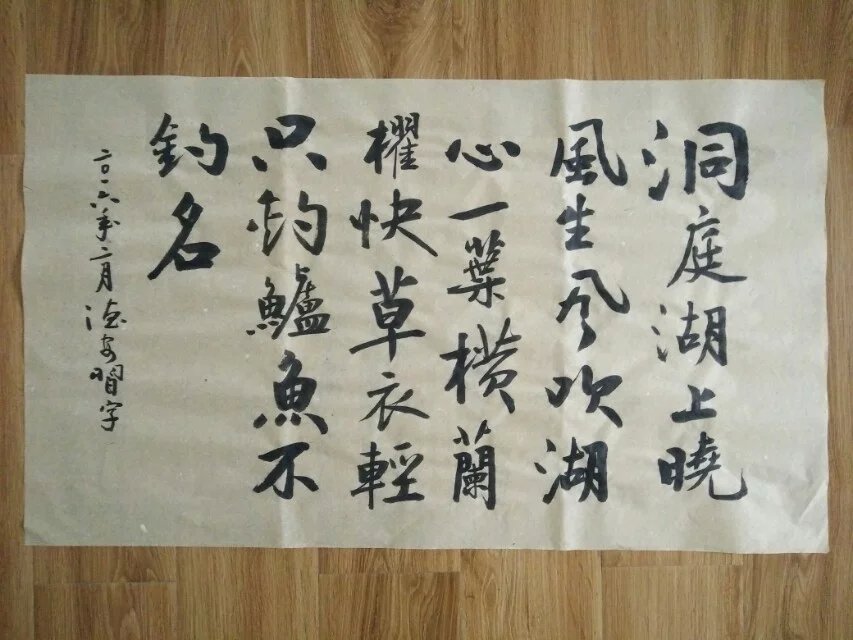 洞庭湖上曉
風生风吹湖
心一葉橫蘭
櫂快草衣輕
只釣鱸魚不
釣名
二〇一六年二月德安習字